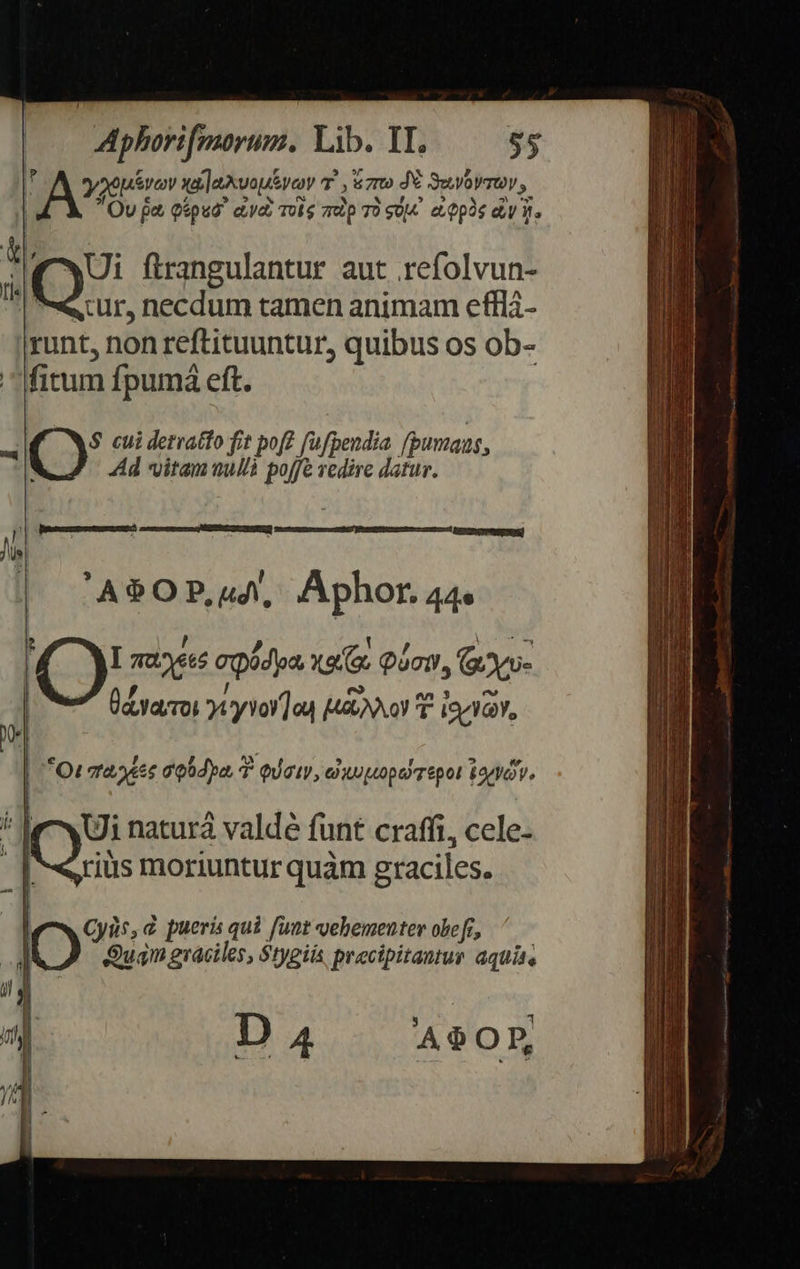 Aphoriſmorum. Lib. II. 55
Ἀγχομένων καταλυομένων τ᾽, ὔπω δὲ θανόντων,
Οὔ ῥα φέρυσ᾽ ἀνὰ τοῖς πὰρ τὸ στόμ᾽ ἀφρὸς ἂν ᾖ.
QUi ſtrangulantur aut reſolvun-
tur, necdum tamen animam efflâ-
runt, non reſtituuntur, quibus os ob-
ſitum ſpumâ eſt.
OS cui detracto fit poſt ſuſpendia ſpumans,
Ad vitam nulli poſſe redire datur.
ἈΦΟΡ. μδ΄. Aphor. 44.
ΟΙ παχέες σφόδρα κατὰ φύσιν, ταχυ-
θάνατοι γίγνονται μᾶλλον τ ἰσχνῶν.
Οἱ παχέες σφόδρα τ φύσιν, ὠκυμορώτεροι ἰσχνῶν.
QUi naturâ valdè ſunt craſſi, cele-
riùs moriuntur quàm graciles.
OCyùs, à pueris qui ſunt vehementer obeſi,
Quàm graciles, Stygiis præcipitantur aquis.
D 4 ἈΦΟΡ,